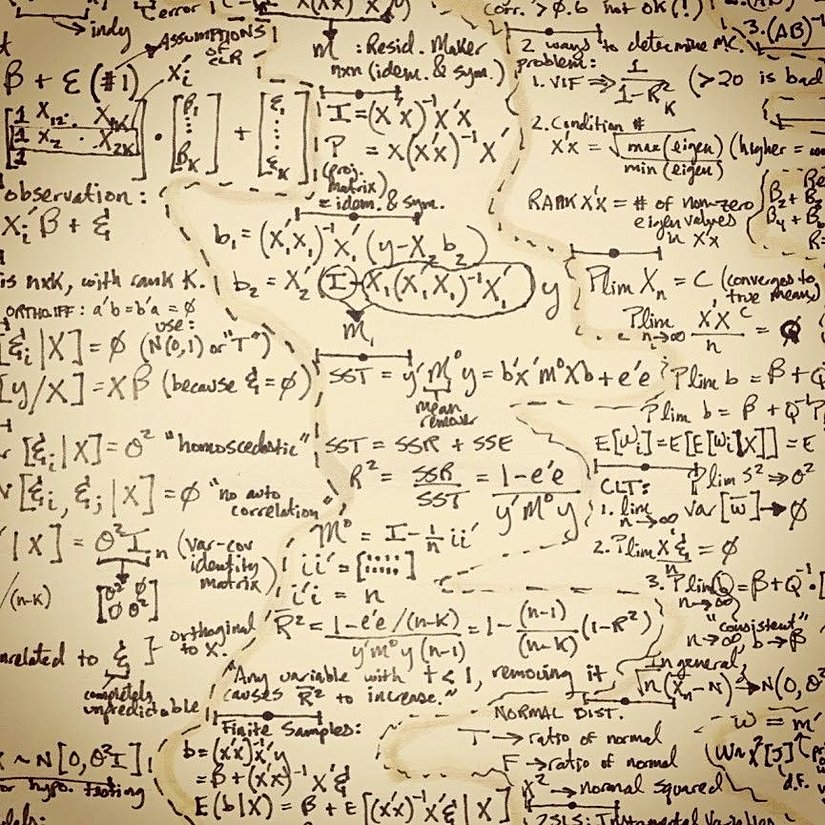 → indy
ASSUMPTIONS
OF
CLR
β + ε (#1)
observation:
Xi'β + ε
is nxk, with rank K.
ORTHO. IFF: a'b = b'a = ∅
use:
[εi|X] = ∅ (N(0,1) or "T")
[y/X] = Xβ (because ε = ∅)
[εi|X] = σ² "homoscedastic"
[εi, εj | X] = ∅ "no auto
correlation"
|X] = σ²In (var-cov
identity
matrix)
[σ² ∅
∅ σ²]
/(n-K)
orthoginal
to X.
related to ε
completely
unpredictable
X ~ N[0, σ²I]
or hypo. testing
M : Resid. Maker
nxn (idem. & sym.)
I = (X'X)⁻¹X'X
P = X(X'X)⁻¹X'
(proj.
matrix)
= idem. & sym.
b₁ = (X₁'X₁)⁻¹X₁'(y-X₂b₂)
b₂ = X₂'(I-X₁(X₁'X₁)⁻¹X₁')y
M₁
SST = y'M⁰y = b'x'm⁰Xb + e'e
mean
remover
SST = SSR + SSE
R² = SSR/SST = 1-e'e/y'M⁰y
M⁰ = I - 1/n ii'
ii' = [:::::]
i'i = n
R̄² = 1-e'e/(n-K)/y'm⁰y(n-1) = 1-(n-1)/(n-K)(1-R²)
"Any variable with t<1, removing it
causes R̄² to increase."
Finite Samples:
b = (x'x)⁻¹x'y
= β + (x'x)⁻¹X'ε
E(b|X) = β + E[(x'x)⁻¹x'ε|X]
corr. > 0.6 not ok(!)
3. (AB)⁻¹
2 ways to determine MC
problem:
1. VIF ⇒ 1/1-R²K (>20 is bad
2. Condition #
X'X = √max(eigen)/min(eigen) (higher =
RANK X'X = # of non-zero
eigenvalues
in X'X
Plim Xn = C (converges to
true mean)
Plim n→∞ X'X/n = Q
Plim b = β + Q
Plim b = β + Q⁻¹P
E[wi] = E[E[wi|X]] = E
Plim s² → σ²
CLT:
1. lim n→∞ var[w̄] → ∅
2. Plim X'ε/n = ∅
3. Plim n→∞ Q = β + Q⁻¹
"consistent"
n→∞, b→β
In general,
√n(X̄n-N) → N(0, σ²
NORMAL DIST.
T → ratio of normal
F → ratio of normal
X² → normal squared
w = m'
W~X²[J]
d.f.
2SLS: Instrumental Variables